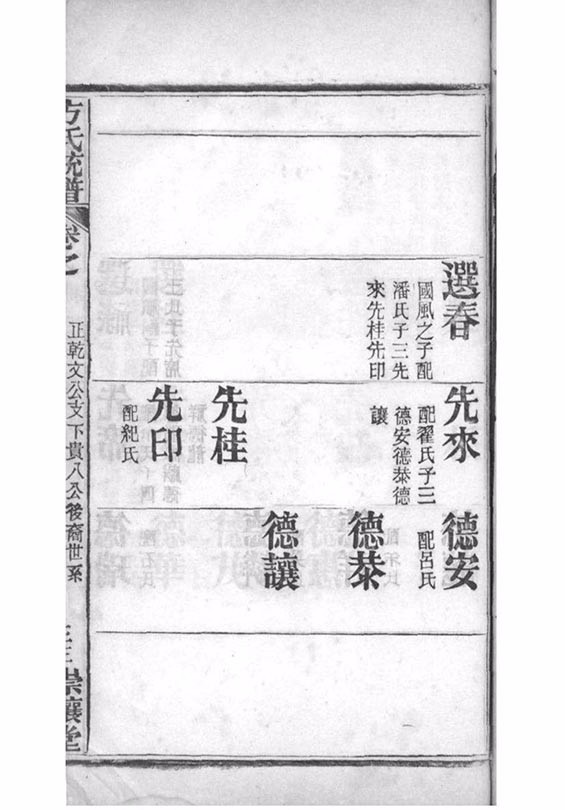 選春
國風之子配
潘氏子三先
來先桂先印
先來
配翟氏子三
德安德㳟德
讓
先桂
先印
配紀氏
德安
配呂氏
德㳟
德讓
方氏統譜
卷之
正乾文公支下貴八公後裔世系
崇讓堂